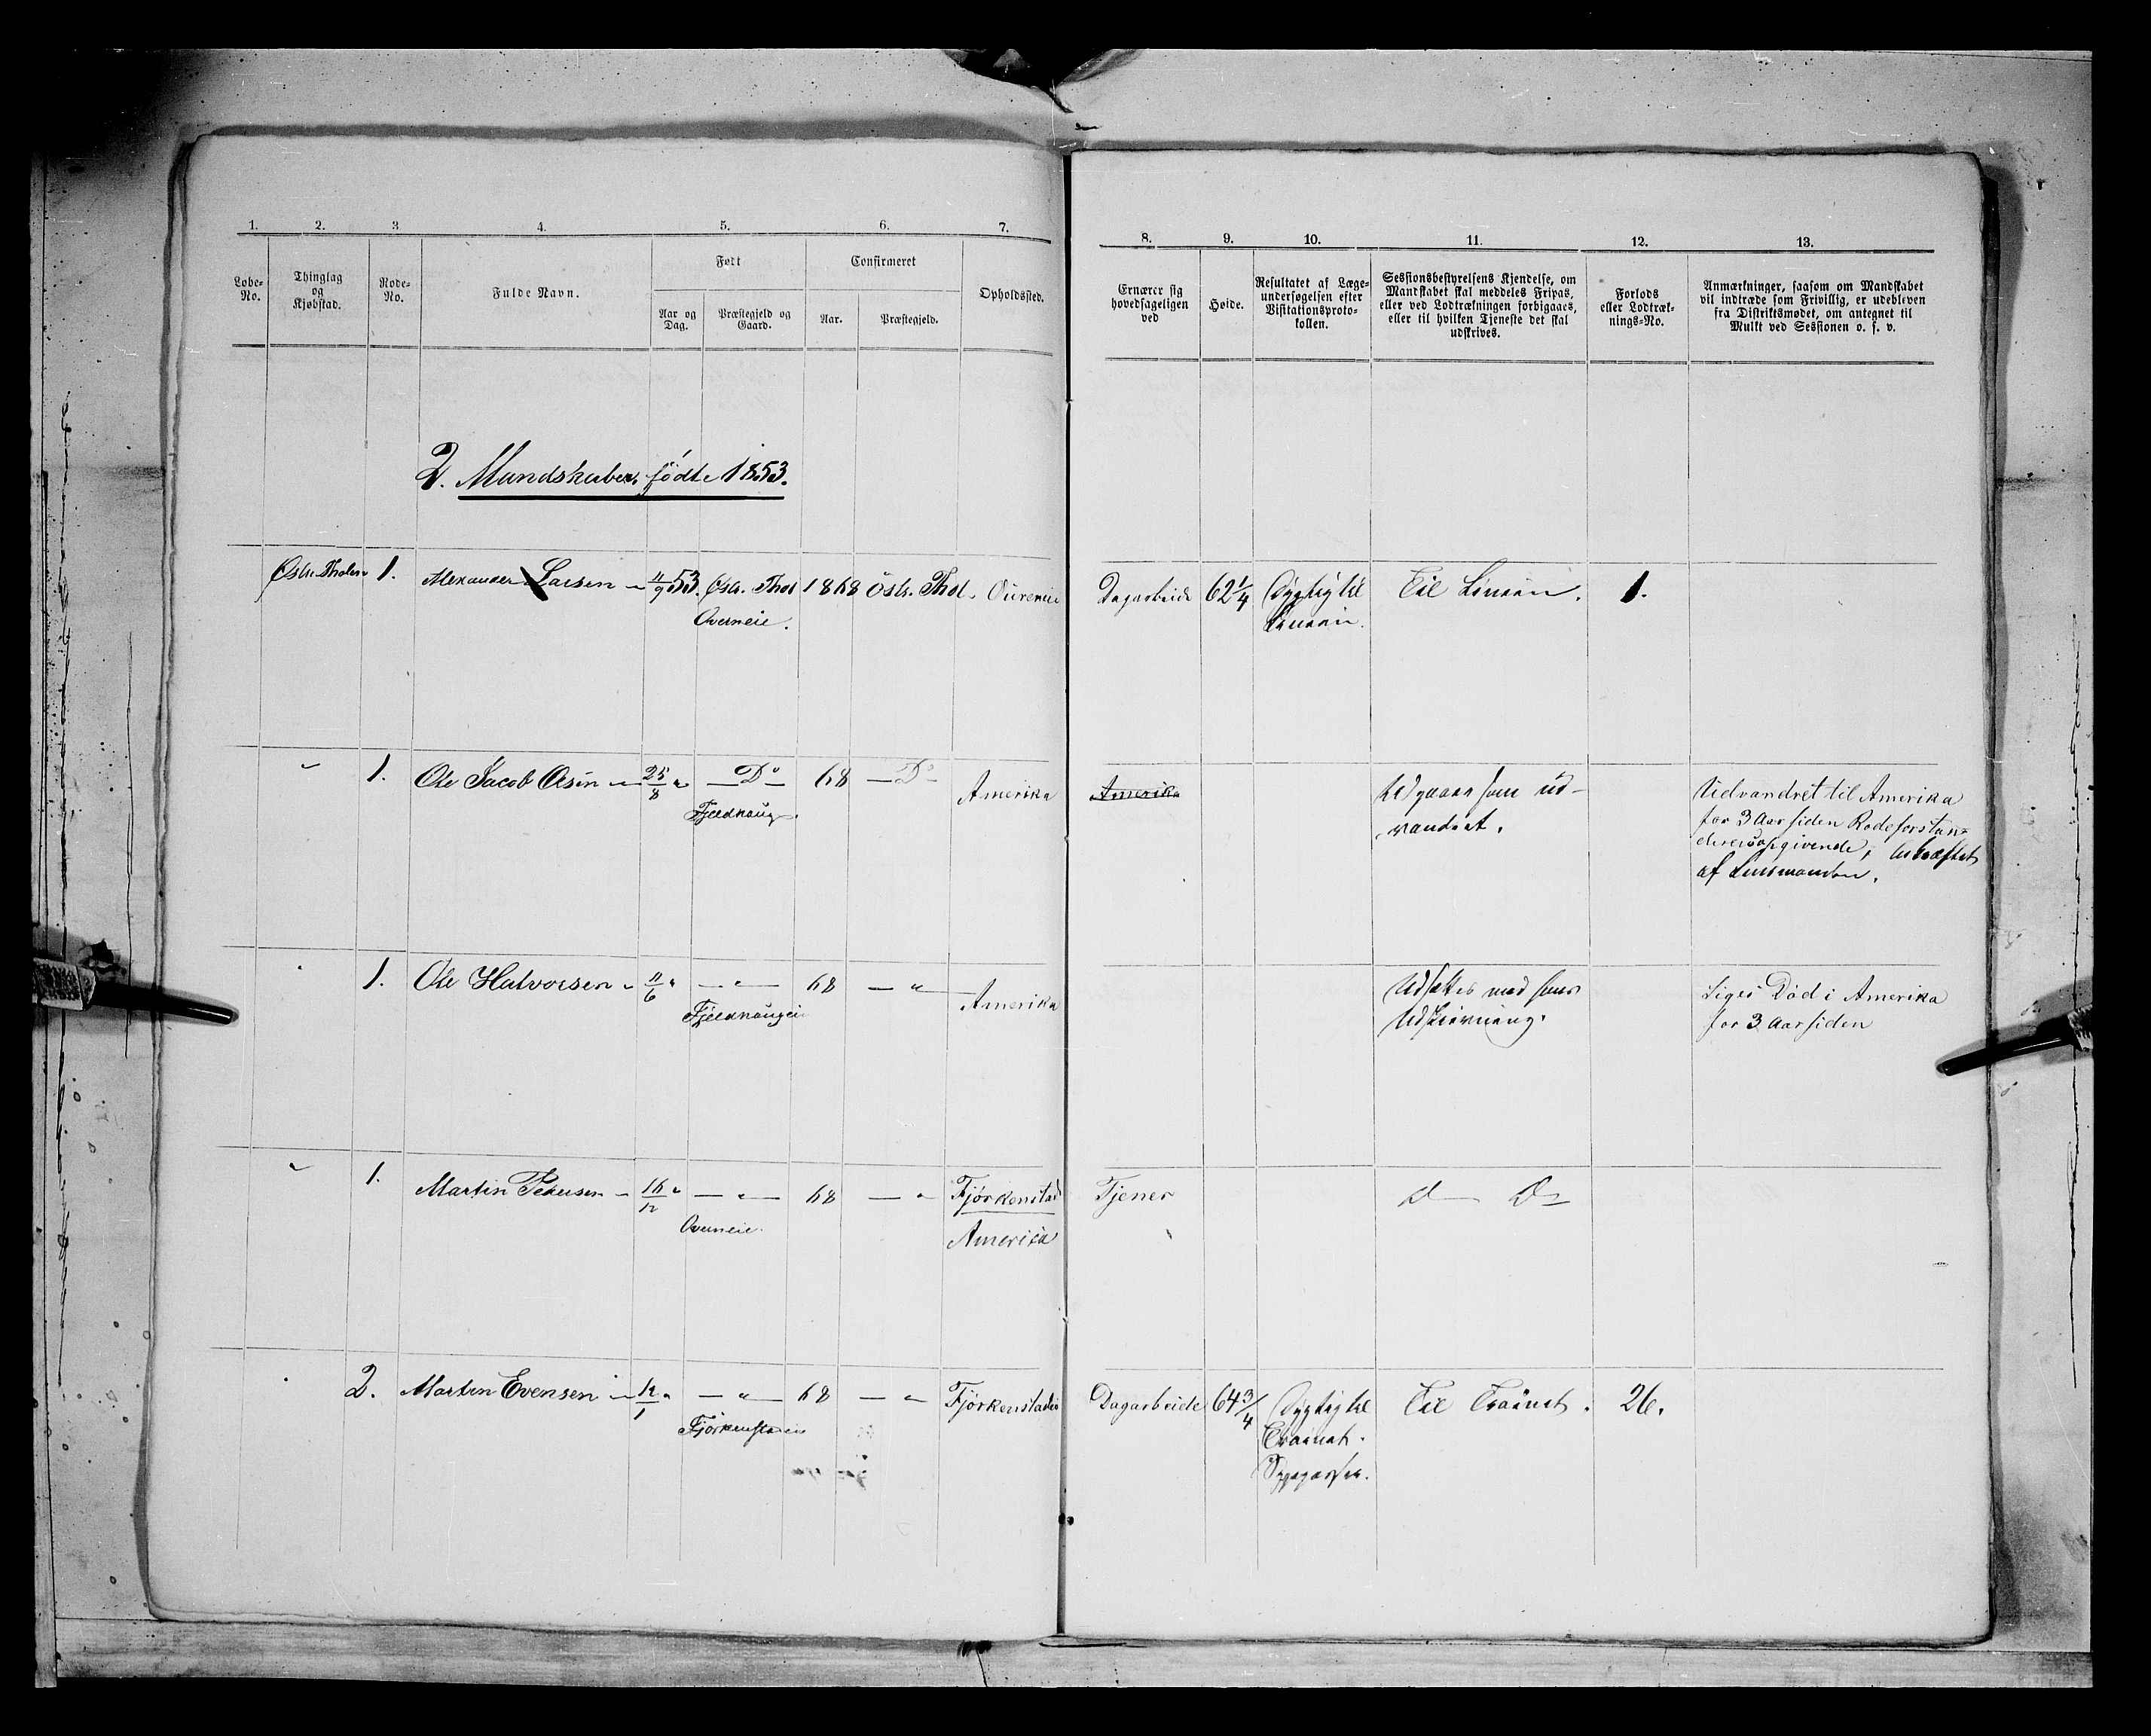 1. 2. 3 4. 5. 6. 7.
Løbe-No. Thinglag og Kjøbstad. Rode-No. Fulde Navn. Født Confirmeret Opholdssted.
Aar og Dag. Præstegjeld og Gaard. Aar. Præstegjeld.
2. Mandskaber, fødte 1853.
Østr. Thoten 1. Alexander Larsen 11/9 53. Østr. Thot 1868 Østr. Thot.
Overneie.
" 1. Ole Jacob Olsen 25/8 " — Do — 68 — Do — Amerika
Fjeldhaug.
" 1. Ole Halvorsen 11/6 " — " — 68 — " — Amerika
Fjeldhaugei
" 1. Martin Pedersen 16/12 " — " — 68 — " Fjörkenstad
Overneie. Amerika
" 2. Martin Evensen 12/1 " — " — 68 — " Fjörkenstadei
8. 9. 10. 11. 12. 13.
Ernærer sig hovedsageligen ved
Høide.
Resultatet af Læge-
undersøgelsen efter
Visitationsproto-
kollen.
Sessionsbestyrelsens Kjendelse, om
Mandskabet skal meddeles Fripas,
eller ved Lodtrækningen forbigaaes,
eller til hvilken Tjeneste det skal
udskrives.
Forlods
eller Lodtræk-
nings-No.
Anmærkninger, saasom om Mandskabet
vil indtræde som Frivillig, er udebleven
fra Distriktsmødet, om antegnet til
Mulkt ved Sessionen o. s. v.
Dagarbeide 62 1/4 Dygtig til Til Linien. 1.
Linien.
Amerika Udgaaer som ud-
vandret.
Udvandret til Amerika
for 3 Aar siden Rodeforstan-
derens opgivende, bekræftet
af Lensmanden.
Udsættes med hans
Udskrivning.
Siges Död i Amerika
for 3 Aar siden
Tjener D— Do
Dagarbeide 64 3/4 Dygtig til Til Trainet. 26.
Trainet.